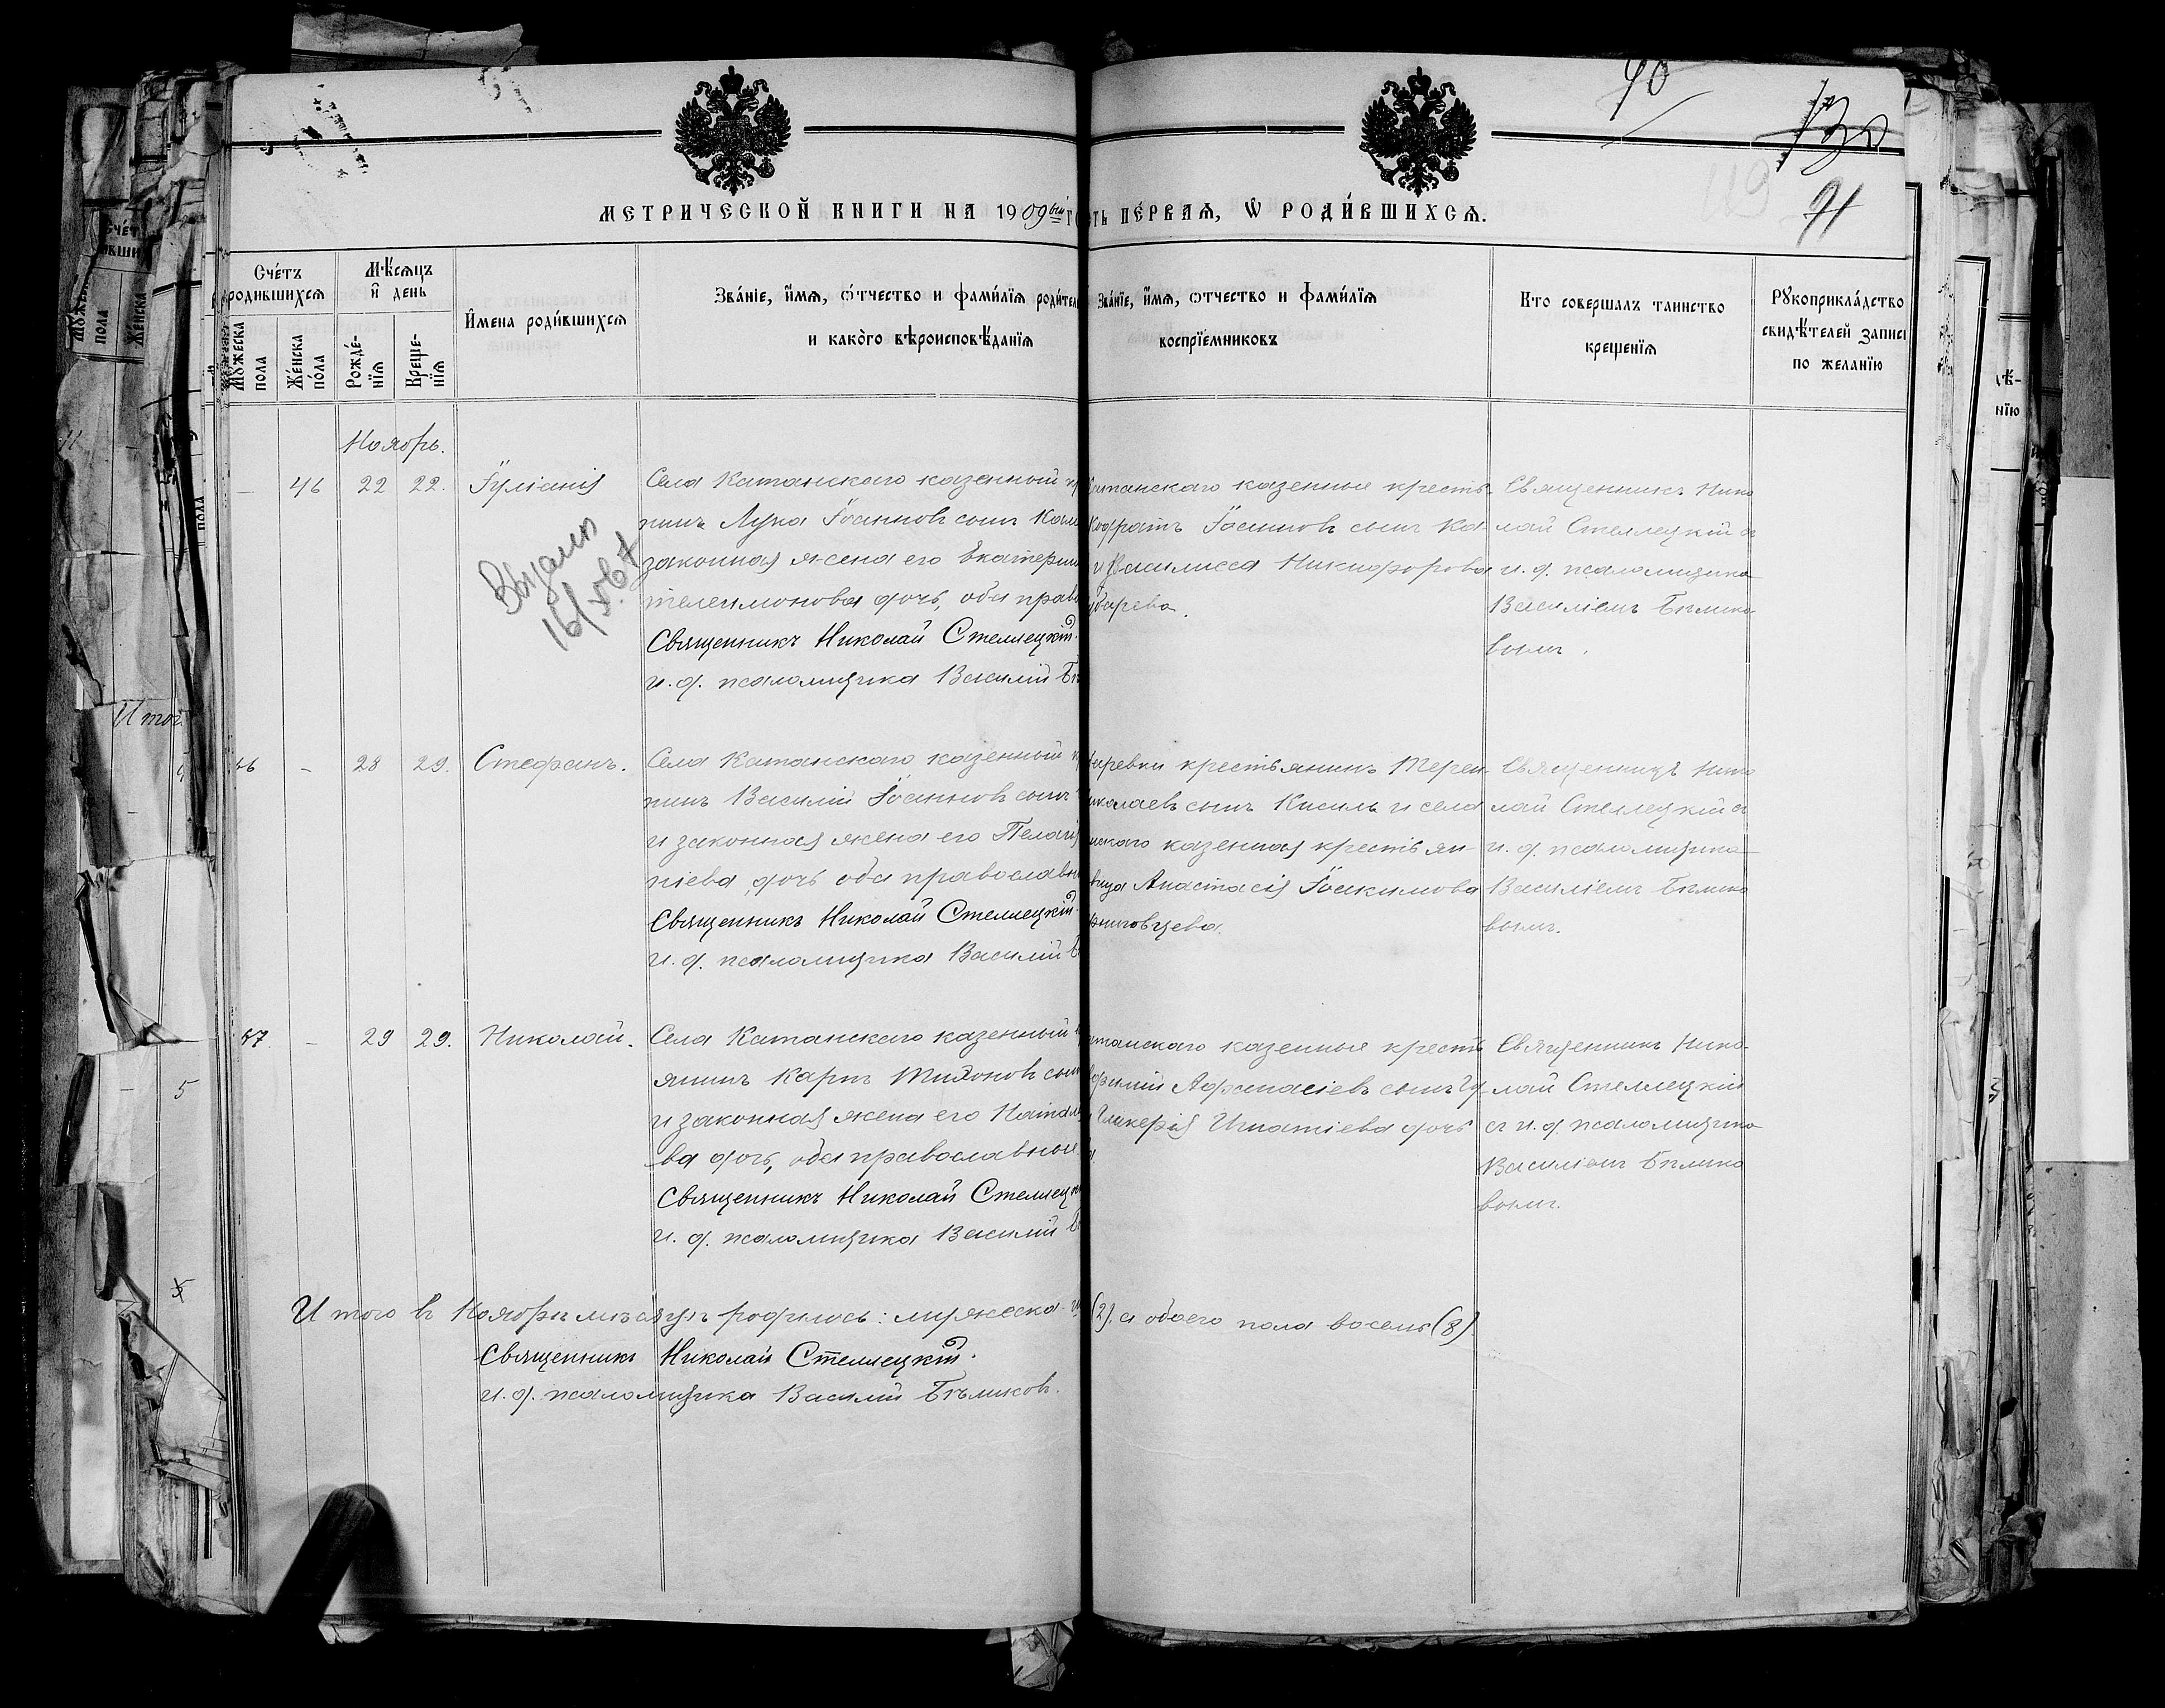 90
130
91
МЕТРИЧЕСКОЙ КНИГИ НА 1909ый г
ть ПЕ́РВАЯ, Ѡ҆ РОДИ́ВШИХСЯ.
Сче́тъ родившихся
Мꙋжеска пола
Же́нска по́ла
Мѣ́сяцъ и҆ день
Рожде́нїя
Креще́нїя
И҆мена роди́вшихся
Зва́нїе, и҆́мя, ѻ҆́тчество и фами́лїя роди́тел
и како́го вѣроисповѣ́данїя
Зва́нїе, и҆́мя, ѻ҆тчество и фами́лїя
воспрїе́мниковъ
Кто совершалъ таинство
крещенїя
Рꙋкоприкла́дство
свидѣ́телей записи
по желанїю
Ноябрь.
– 46 22 22. Іуліанія
Села Катанскаго казенный кр
нинъ Лука Іоанновъ сынъ
законная жена его Екатерин
телеимонова дочь, оба право
Священникъ Николай Стеллецкій.
и. д. псаломщика Василій Бѣ
Выдано
танскаго казенные кресть
Кодратъ Іоанновъ сынъ Ка
и Василисса Никифорова
Священникъ Нико
лай Стеллецкій съ
и. д. псаломщика
Василіемъ Бѣлико
вымъ.
46 – 28 29. Стефанъ.
Села Катанскаго казенный кр
нинъ Василій Іоанновъ сынъ
и законная жена его Пелагія
ніева дочь оба православн
Священникъ Николай Стеллецкій.
и. д. псаломщика Василій Б
деревки крестьянинъ Терен
иколаевъ сынъ Кисиль и села
нскаго казенная крестьян
вица Анастасія Іоакимова
Священникъ Нико
лай Стеллецкій съ
и. д. псаломщика
Василіемъ Бѣлико
вымъ.
47. – 29 29. Николай.
Села Катанскаго казенный к
янинъ Карпъ Тихоновъ сын
и законная жена его Натал
ва дочь, оба православные.
Священникъ Николай Стеллецк
и. д. псаломщика Василій Б
танскаго казенные кресть
Афанасіевъ сынъ
Гликерія Игнатіева дочь
Священникъ Нико-
лай Стеллецкій
съ и. д. псаломщика
Василіемъ Бѣлико
вымъ.
Итого въ Ноябрѣ мѣсяцѣ родилось: мужеска
(2), а обоего пола восемь (8).
Священникъ Николай Стеллецкій.
и. д. псаломщика Василій Бѣликовъ.